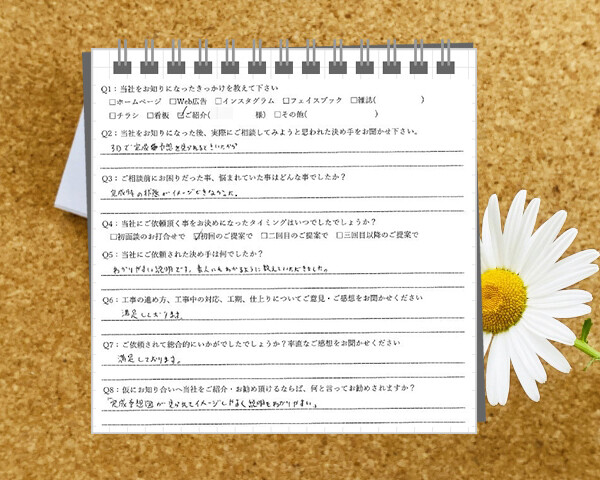 Q1：当社をお知りになったきっかけを教えて下さい
□ホームページ □Web広告 □インスタグラム □フェイスブック □雑誌( )
□チラシ □看板 ☑ご紹介( 様) □その他( )
Q2：当社をお知りになった後、実際にご相談してみようと思われた決め手をお聞かせ下さい。
3Dで完成予想を見られるときいたから
Q3：ご相談前にお困りだった事、悩まれていた事はどんな事でしたか？
完成時の部屋がイメージできなかった。
Q4：当社にご依頼頂く事をお決めになったタイミングはいつでしたでしょうか？
□初面談のお打合せで ☑初回のご提案で □二回目のご提案で □三回目以降のご提案で
Q5：当社にご依頼された決め手は何でしたか？
わかりやすい説明です。素人にもわかるように教えていただきました。
Q6：工事の進め方、工事中の対応、工期、仕上りについてご意見・ご感想をお聞かせください
満足しております。
Q7：ご依頼されて総合的にいかがでしたでしょうか？率直なご感想をお聞かせください
満足しております。
Q8：仮にお知り合いへ当社をご紹介・お勧め頂けるならば、何と言ってお勧めされますか？
「完成予想図が見られてイメージしやすく説明もわかりやすい」